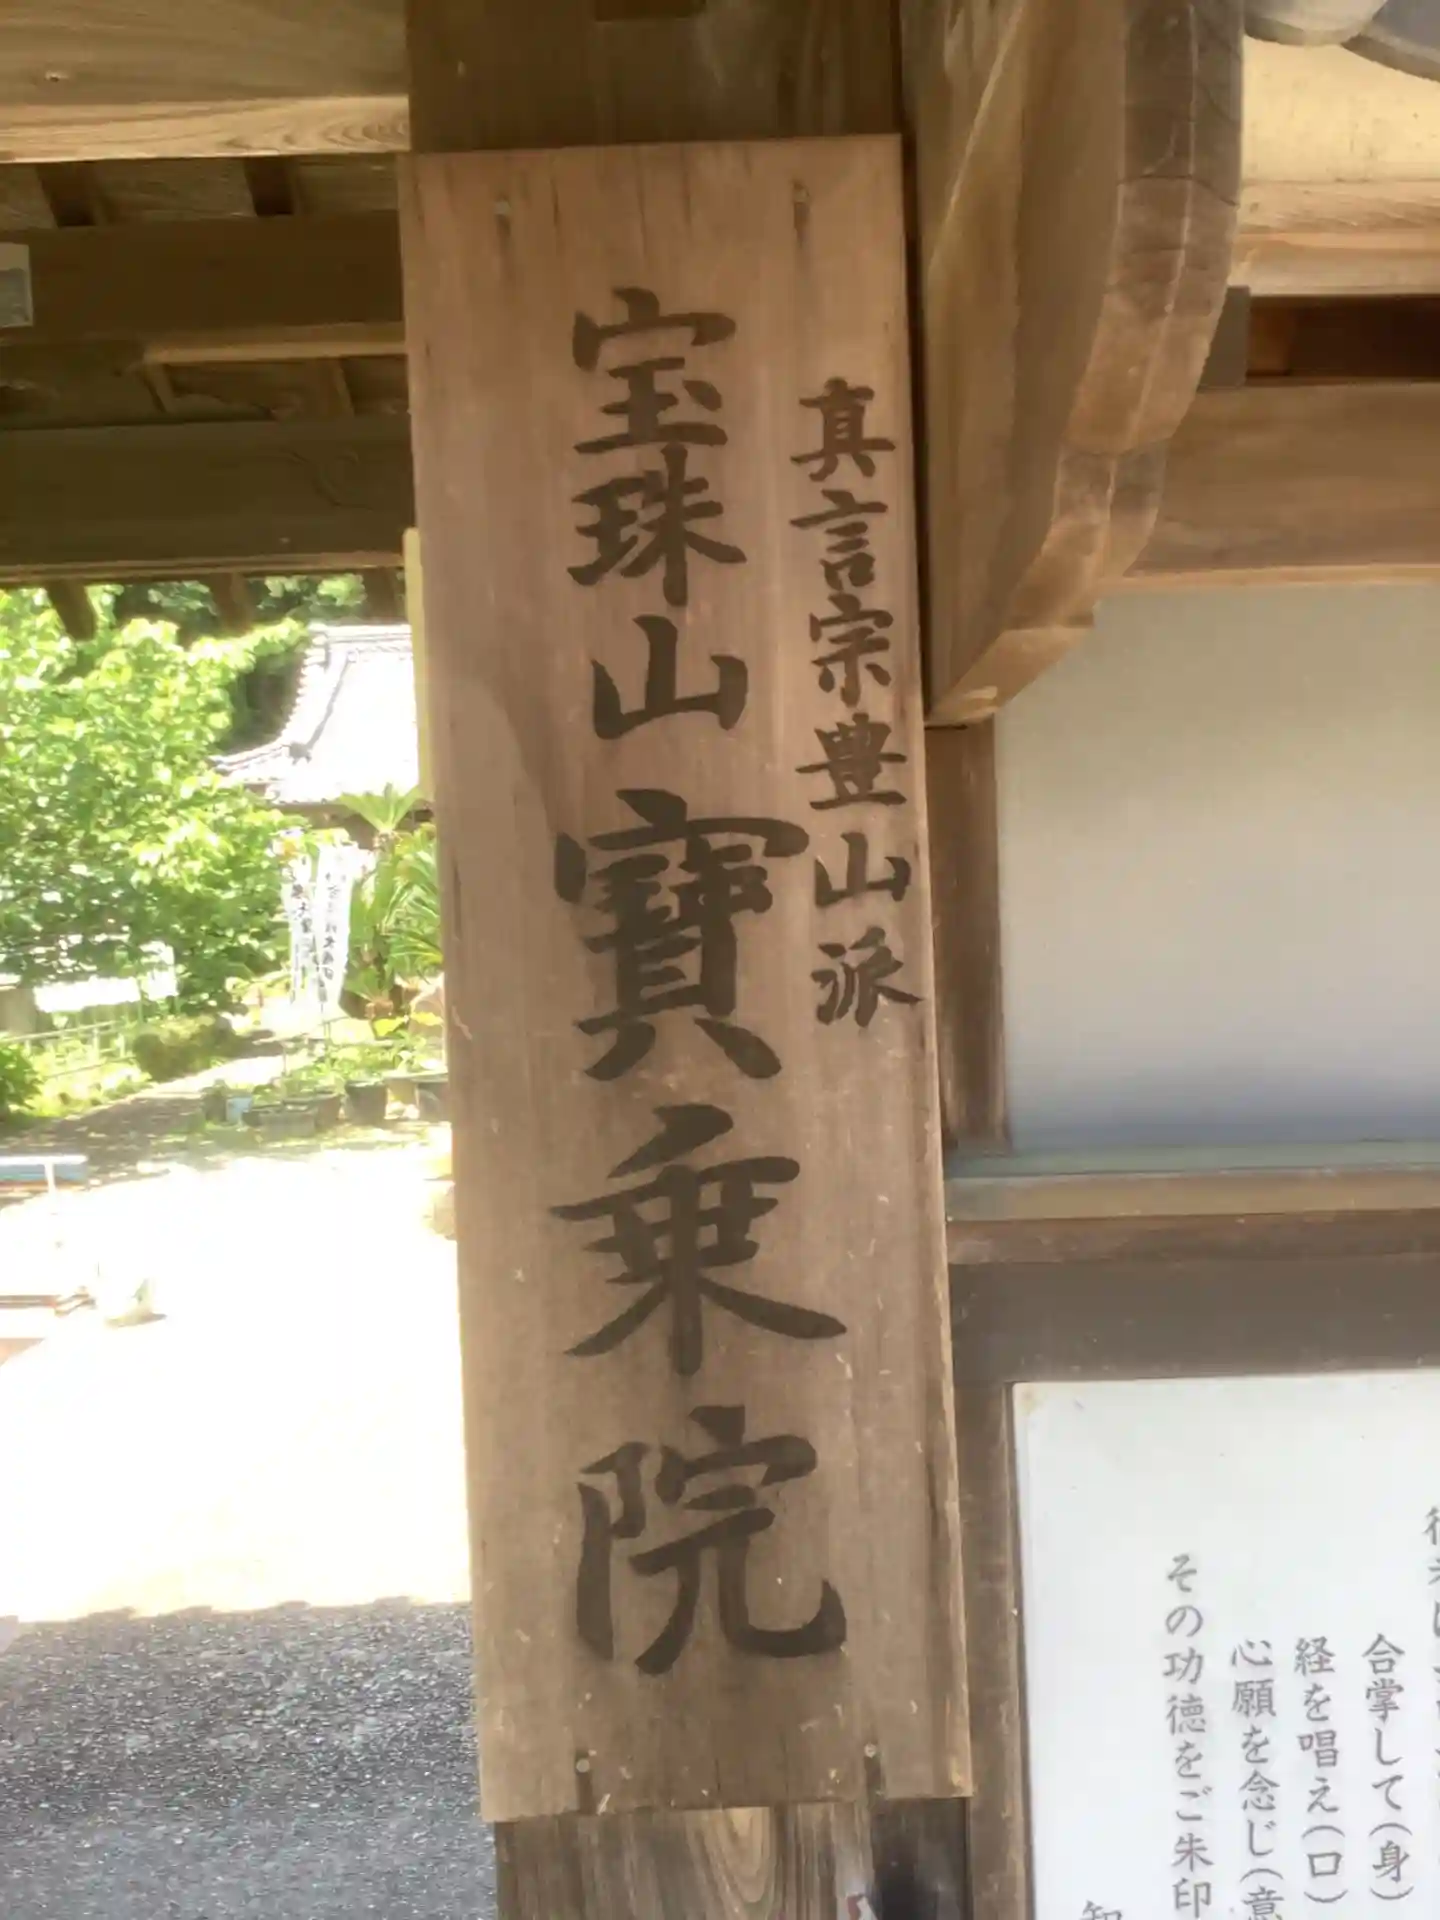 真言宗豊山派
宝珠山 寶乗院
合掌して(身)
経を唱え(口)
心願を念じ(意
その功徳をご朱印